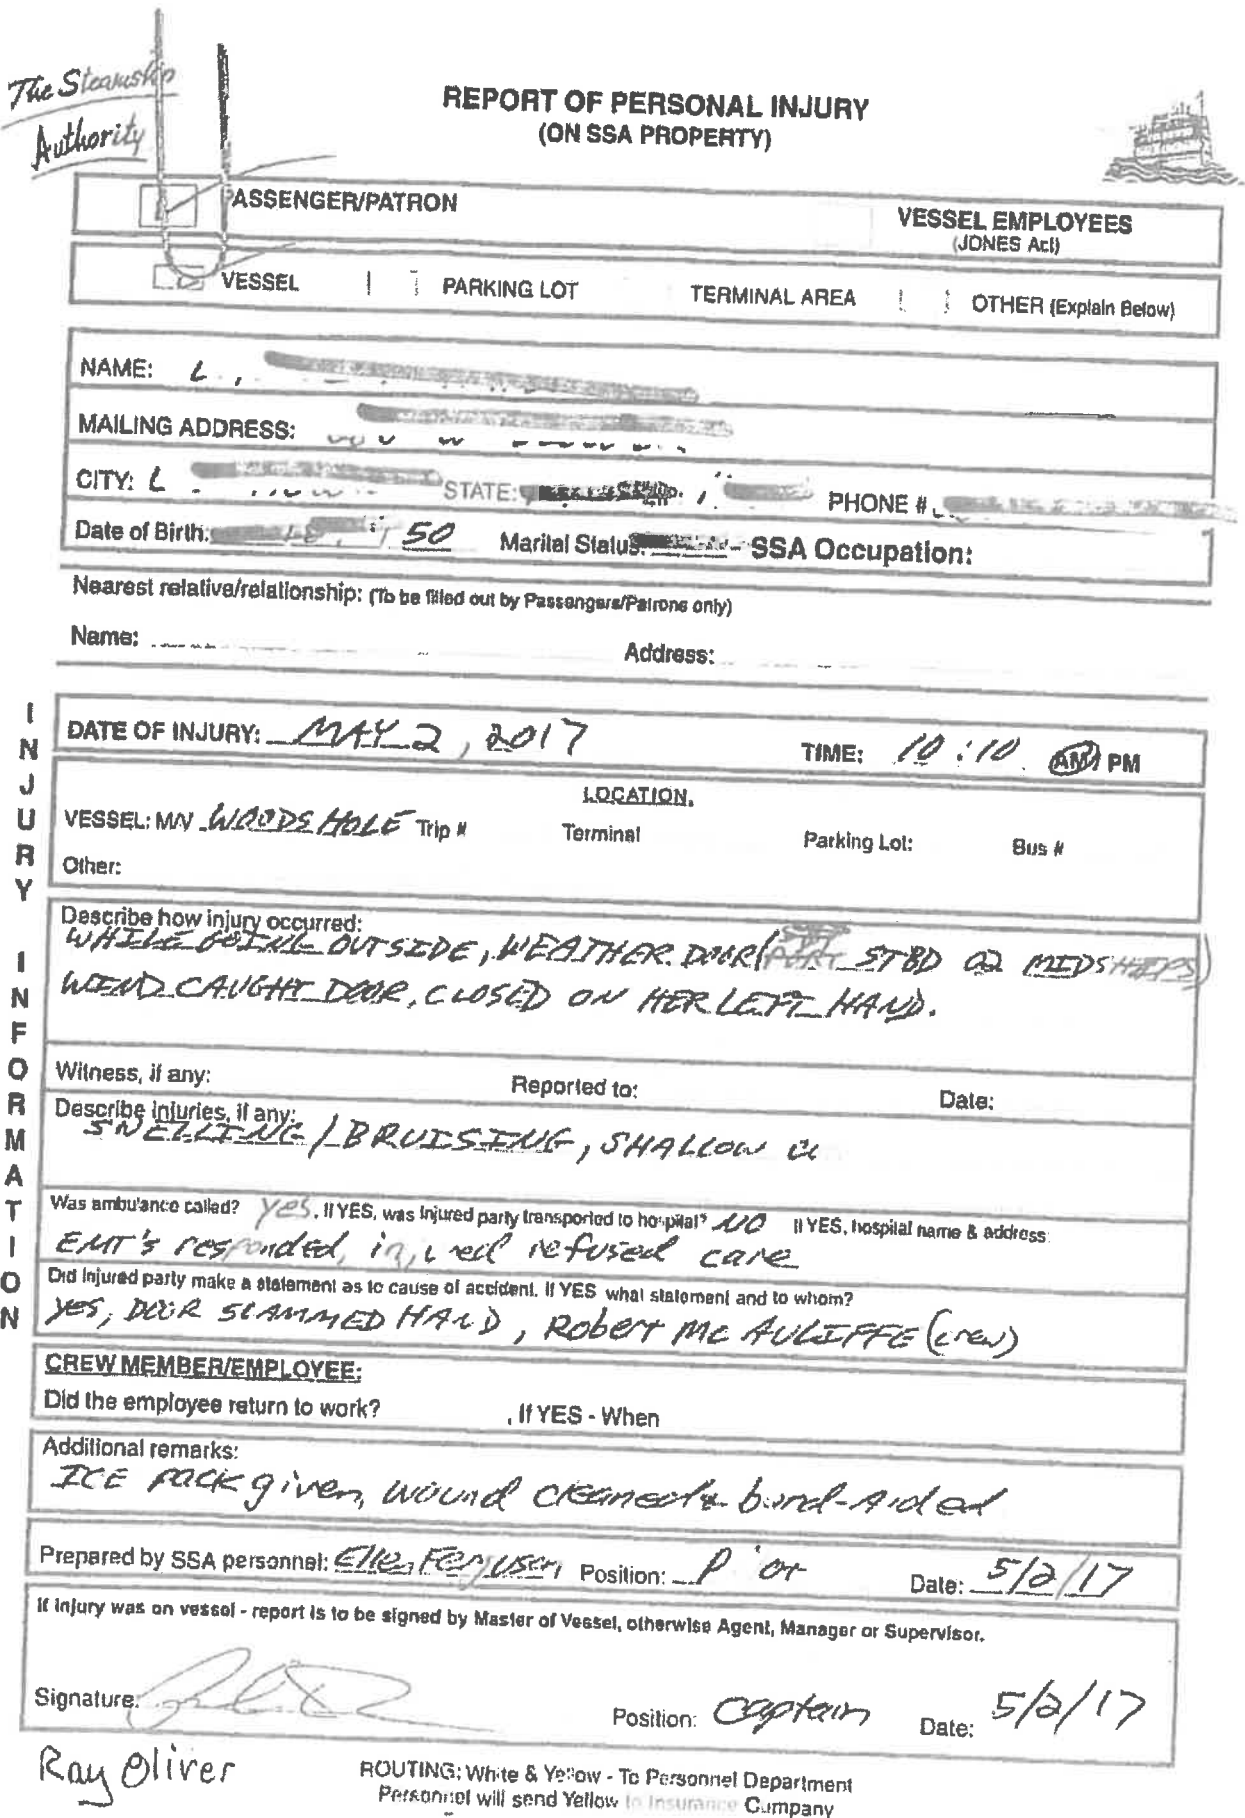 The Steamship
Authority
REPORT OF PERSONAL INJURY
(ON SSA PROPERTY)
PASSENGER/PATRON
VESSEL EMPLOYEES
(JONES Act)
VESSEL PARKING LOT TERMINAL AREA OTHER (Explain Below)
NAME: L
MAILING ADDRESS:
CITY: L STATE: PHONE #
Date of Birth: 50 Marital Status: SSA Occupation:
Nearest relative/relationship: (To be filled out by Passengers/Patrons only)
Name: Address:
INJURY INFORMATION
DATE OF INJURY: MAY 2, 2017 TIME: 10:10 AM PM
LOCATION
VESSEL: M/V WOODS HOLE Trip # Terminal Parking Lot: Bus #
Other:
Describe how injury occurred:
WHILE GOING OUTSIDE, WEATHER DOOR ( STBD 02 MIDSHIPS)
WIND CAUGHT DOOR, CLOSED ON HER LEFT HAND.
Witness, if any: Reported to: Date:
Describe injuries, if any:
SWELLING/BRUISING, SHALLOW
Was ambulance called? yes. If YES, was injured party transported to hospital? NO If YES, hospital name & address:
EMT's responded, injured refused care
Did injured party make a statement as to cause of accident. If YES what statement and to whom?
yes, DOOR SLAMMED HAND, Robert McAULIFFE (crew)
CREW MEMBER/EMPLOYEE:
Did the employee return to work? , If YES - When
Additional remarks:
ICE pack given, wound cleaned & band-Aided
Prepared by SSA personnel: Ellen Ferguson Position: Date: 5/2/17
If injury was on vessel - report is to be signed by Master of Vessel, otherwise Agent, Manager or Supervisor.
Signature: Position: Captain Date: 5/2/17
Ray Oliver
ROUTING: White & Yellow - To Personnel Department
Personnel will send Yellow to Insurance Company